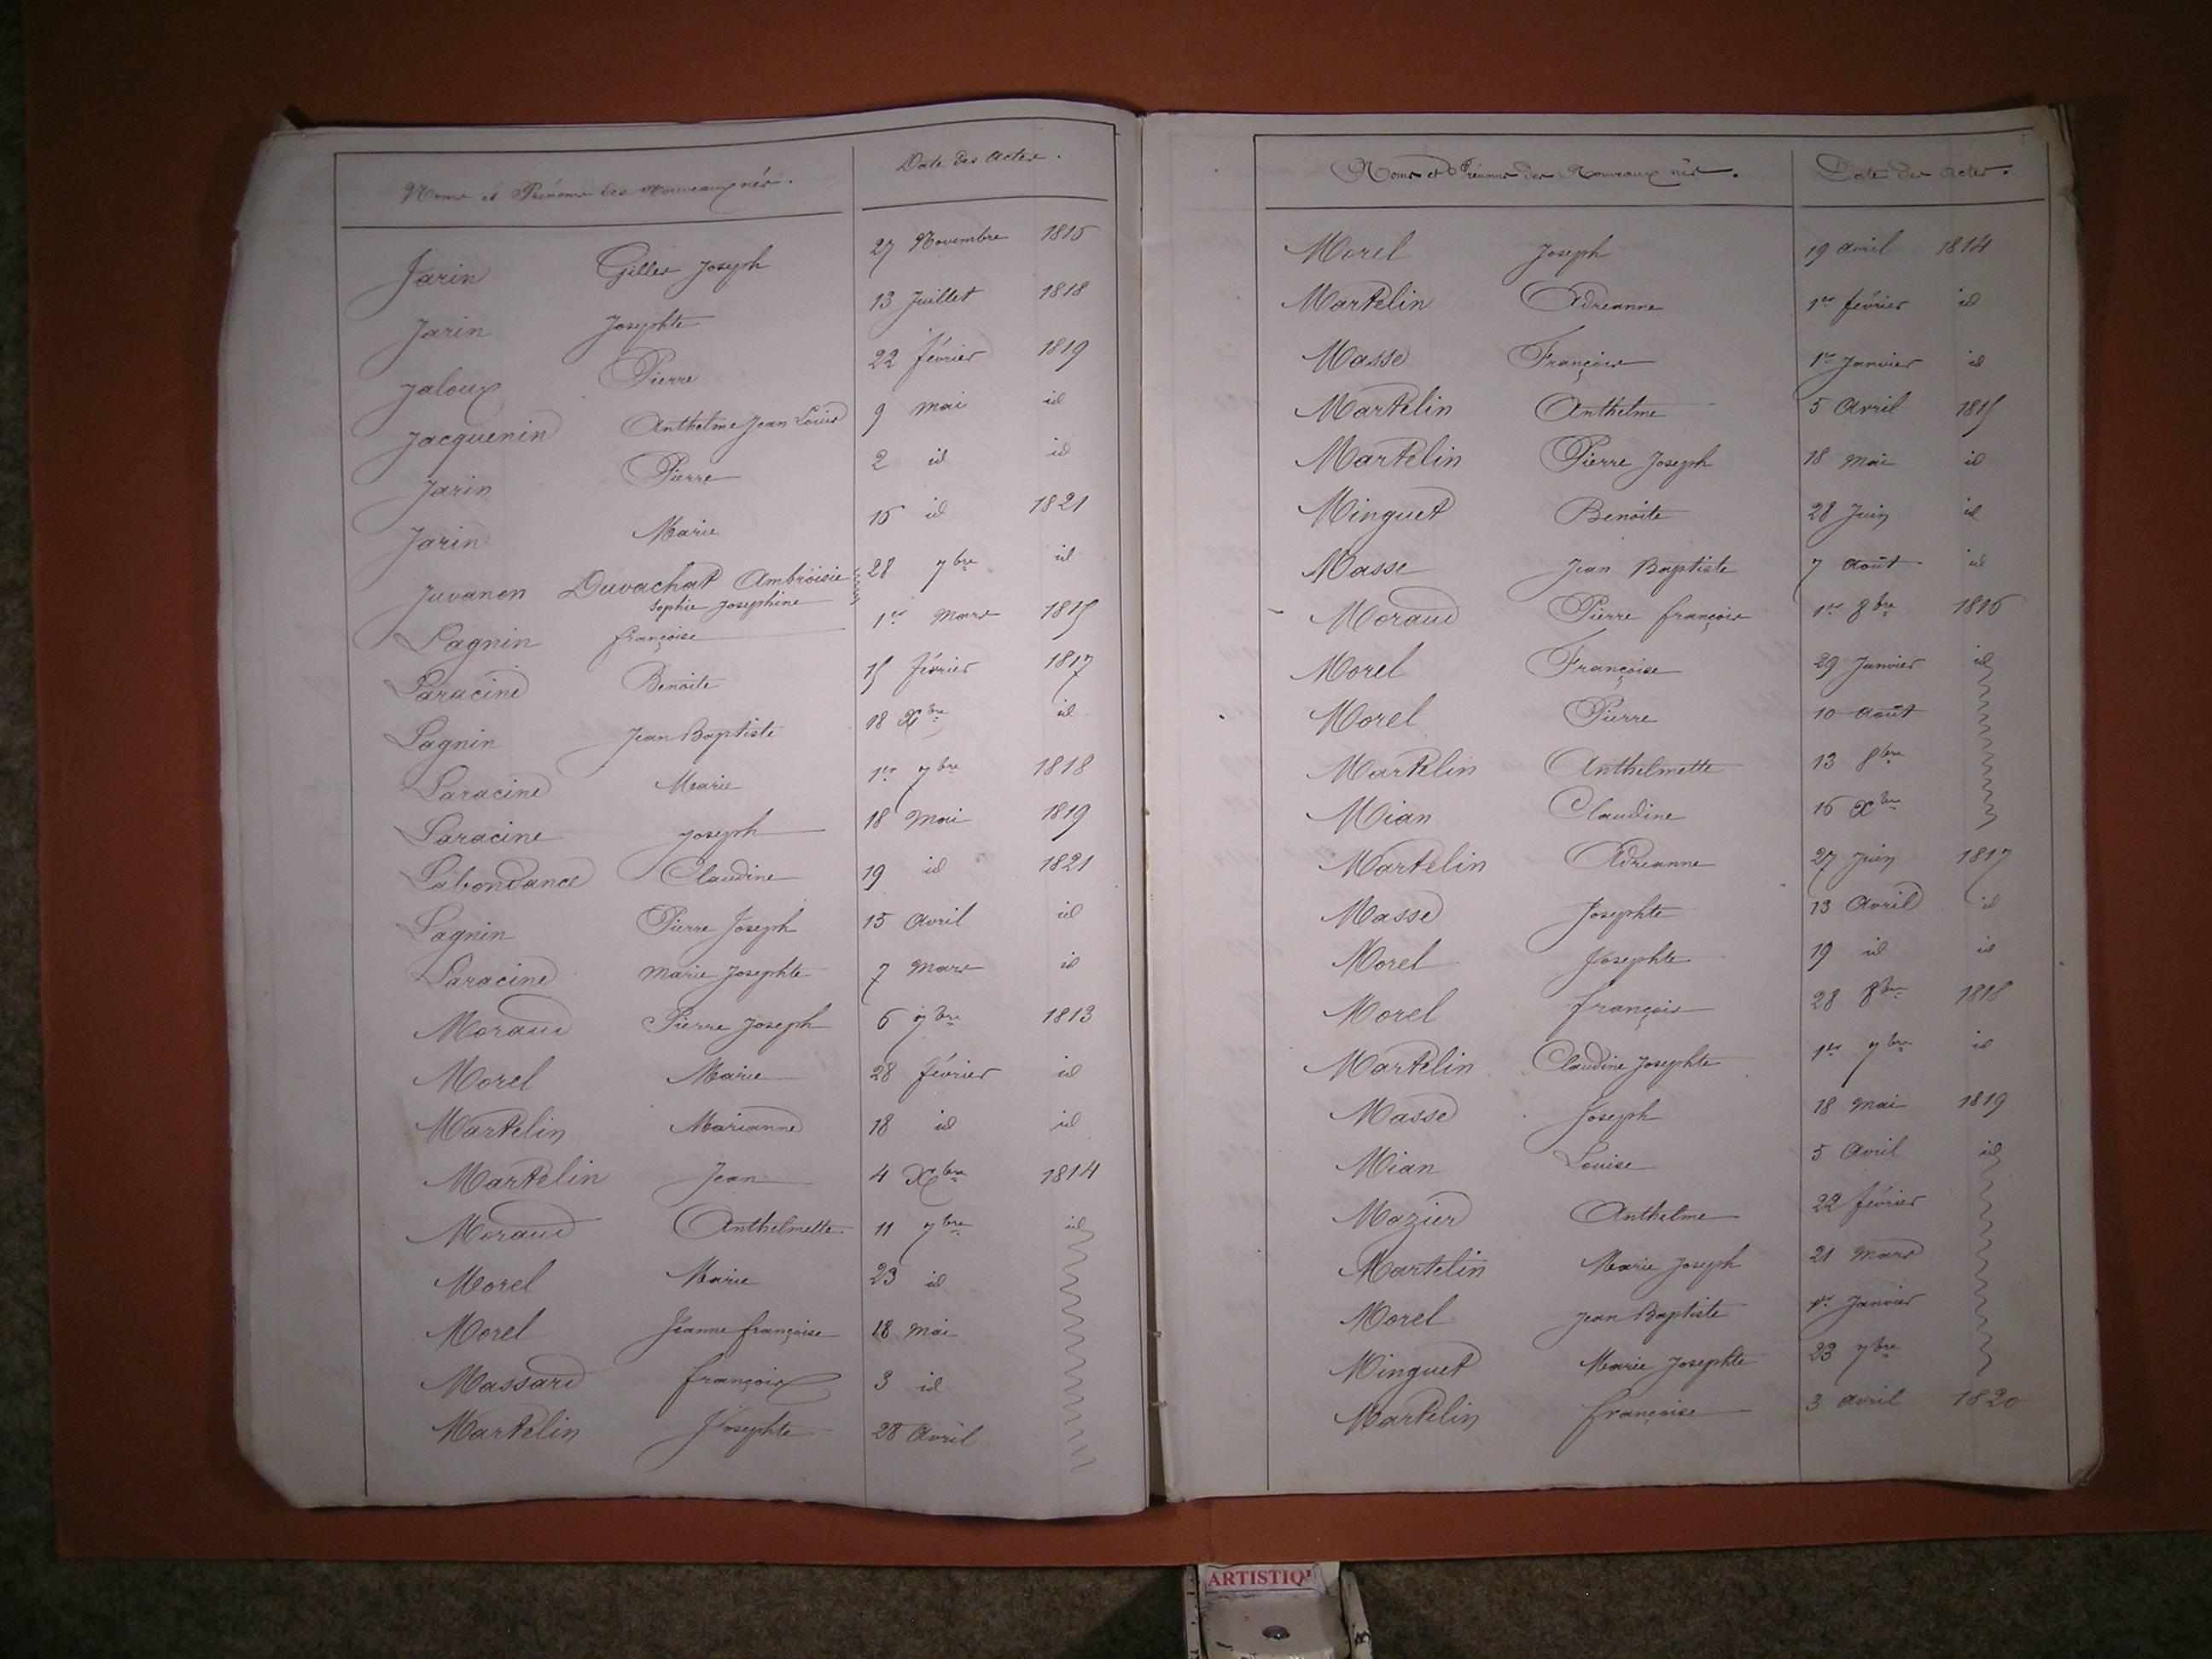 Noms et Prénoms des Nouveaux nés. Date des Actes.
Jarin Gilles Joseph 27 Novembre 1816
Jarin Josephte 13 Juillet 1818
Jaloux Pierre 22 février 1819
Jacquenin Anthelme Jean Louis 9 mai id
Jarin Pierre 2 id id
Jarin Marie 16 id 1821
Juvanon Duvachat Ambroisie 28 7bre id
Sophie Josephine
Lagnin françoise 1er Mars 1815
Laracine Benoite 15 février 1817
Lagnin Jean Baptiste 18 Xbre id
Laracine Marie 1er 7bre 1818
Laracine Joseph 18 Mai 1819
Labondance Claudine 19 id 1821
Lagnin Pierre Joseph 15 Avril id
Laracine Marie Josephte 7 Mars id
Moraud Pierre Joseph 6 7bre 1813
Morel Marie 28 février id
Martelin Marianne 18 id id
Martelin Jean 4 Xbre 1814
Moraud Anthelmette 11 7bre id
Morel Marie 23 id
Morel Jeanne françoise 18 Mai
Massard françois 3 id
Martelin Josephte 28 Avril
Noms et Prénoms des Nouveaux nés. Date des Actes.
Morel Joseph 19 avril 1814
Martelin Adreanne 1er février id
Masse François 1er Janvier id
Martelin Anthelme 5 Avril 1815
Martelin Pierre Joseph 18 Mai id
Minguet Benoite 28 Juin id
Masse Jean Baptiste 7 Août id
Moraud Pierre françois 1er 8bre 1816
Morel Françoise 29 Janvier id
Morel Pierre 10 Août
Martelin Anthelmette 13 8bre
Mian Claudine 16 Xbre
Martelin Adreanne 27 Juin 1817
Masse Josephte 13 Avril id
Morel Josephte 19 id id
Morel françois 28 8bre 1818
Martelin Claudine Josephte 1er 7bre id
Masse Joseph 18 Mai 1819
Mian Louise 5 Avril id
Mazier Anthelme 22 février
Martelin Marie Joseph 21 Mars
Morel Jean Baptiste 1er Janvier
Minguet Marie Josephte 23 7bre
Martelin françoise 3 avril 1820
ARTISTIQ